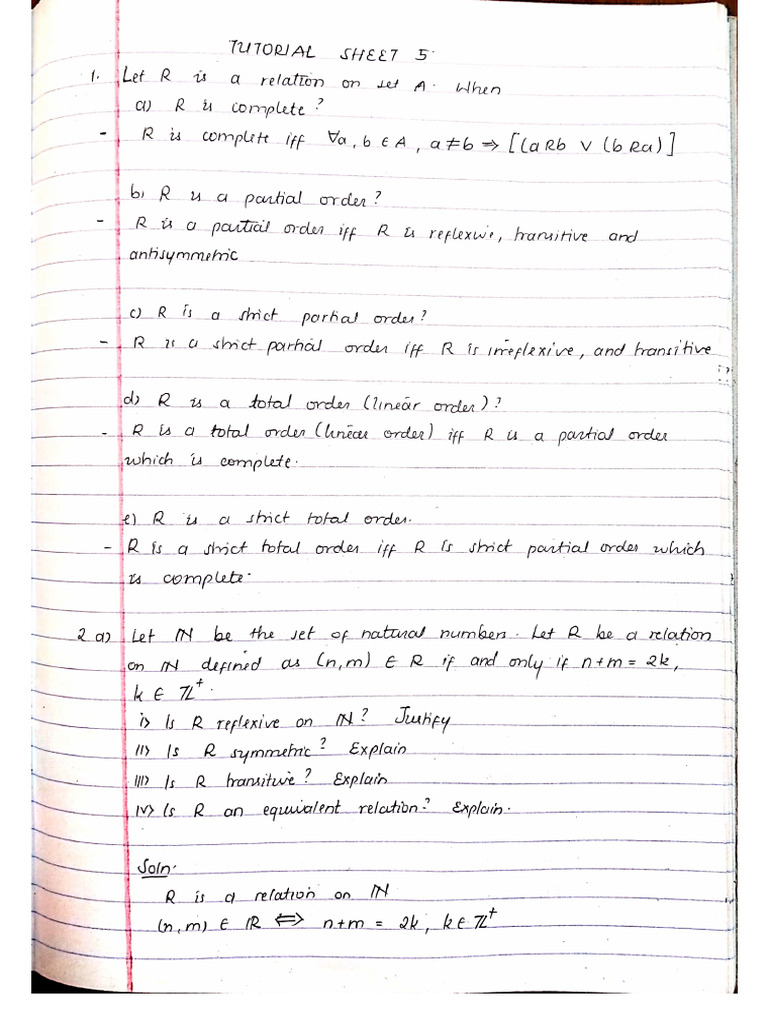 TUTORIAL SHEET 5.
1. Let R is a relation on set A. When
a) R is complete?
- R is complete iff ∀a, b ∈ A, a ≠ b ⇒ [(aRb ∨ (bRa)]
b) R is a partial order?
- R is a partial order iff R is reflexive, transitive and
antisymmetric
c) R is a strict partial order?
- R is a strict partial order iff R is irreflexive, and transitive
d) R is a total order (linear order)?
- R is a total order (linear order) iff R is a partial order
which is complete.
e) R is a strict total order.
- R is a strict total order iff R is strict partial order which
is complete.
2. a) Let ℕ be the set of natural numbers. Let R be a relation
on ℕ defined as (n, m) ∈ R if and only if n + m = 2k,
k ∈ ℤ⁺.
i) Is R reflexive on ℕ? Justify
ii) Is R symmetric? Explain
iii) Is R transitive? Explain
iv) Is R an equivalent relation? Explain.
Soln.
R is a relation on ℕ
(n, m) ∈ R ⇔ n + m = 2k, k ∈ ℤ⁺